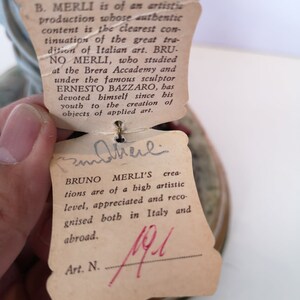 B. MERLI is of an artistic
production whose authentic
content is the clearest con-
tinuation of the great tra-
dition of Italian art. BRU-
NO MERLI, who studied
at the Brera Accademy and
under the famous sculptor
ERNESTO BAZZARO, has
devoted himself since his
youth to the creation of
objects of applied art.
Bruno Merli
BRUNO MERLI'S crea-
tions are of a high artistic
level, appreciated and reco-
gnised both in Italy and
abroad.
Art. N.